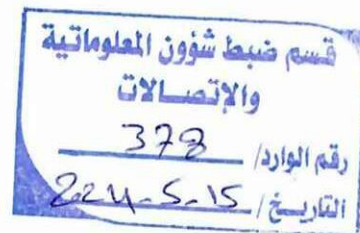 قسم ضبط شؤون المعلوماتية
والإتصالات
رقم الوارد/ 378
التاريخ / 2024-5-15